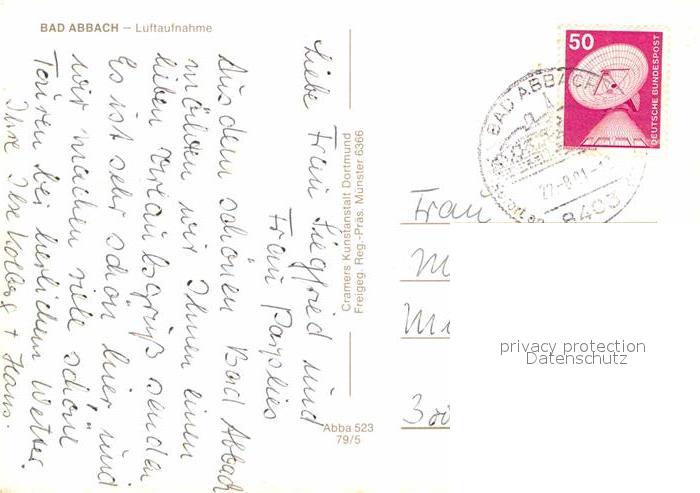 BAD ABBACH – Luftaufnahme
Liebe Frau Siegfried und
Frau
Aus dem schönen Bad Abbach
möchten wir Ihnen einen
lieben Urlaubsgruß senden
Es ist sehr schön hier und
wir machen viele schöne
Touren bei herlichem Wetter.
Ihre Ilse Kolberg + Hans.
Cramers Kunstanstalt Dortmund
Freigeg. Reg.-Präs. Münster 6366
Abba 523
79/5
50
DEUTSCHE BUNDESPOST
BAD ABBACH
8403
Frau
M
300
privacy protection
Datenschutz